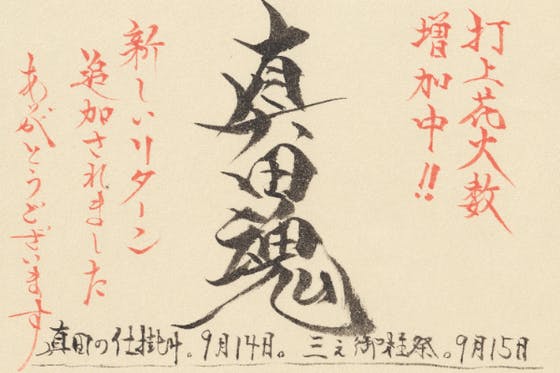 打上花火数
増加中!!
真田魂
新しいリターン
追加されました
ありがとうございます
真田の仕掛け。9月14日。三ヶ御柱祭。9月15日